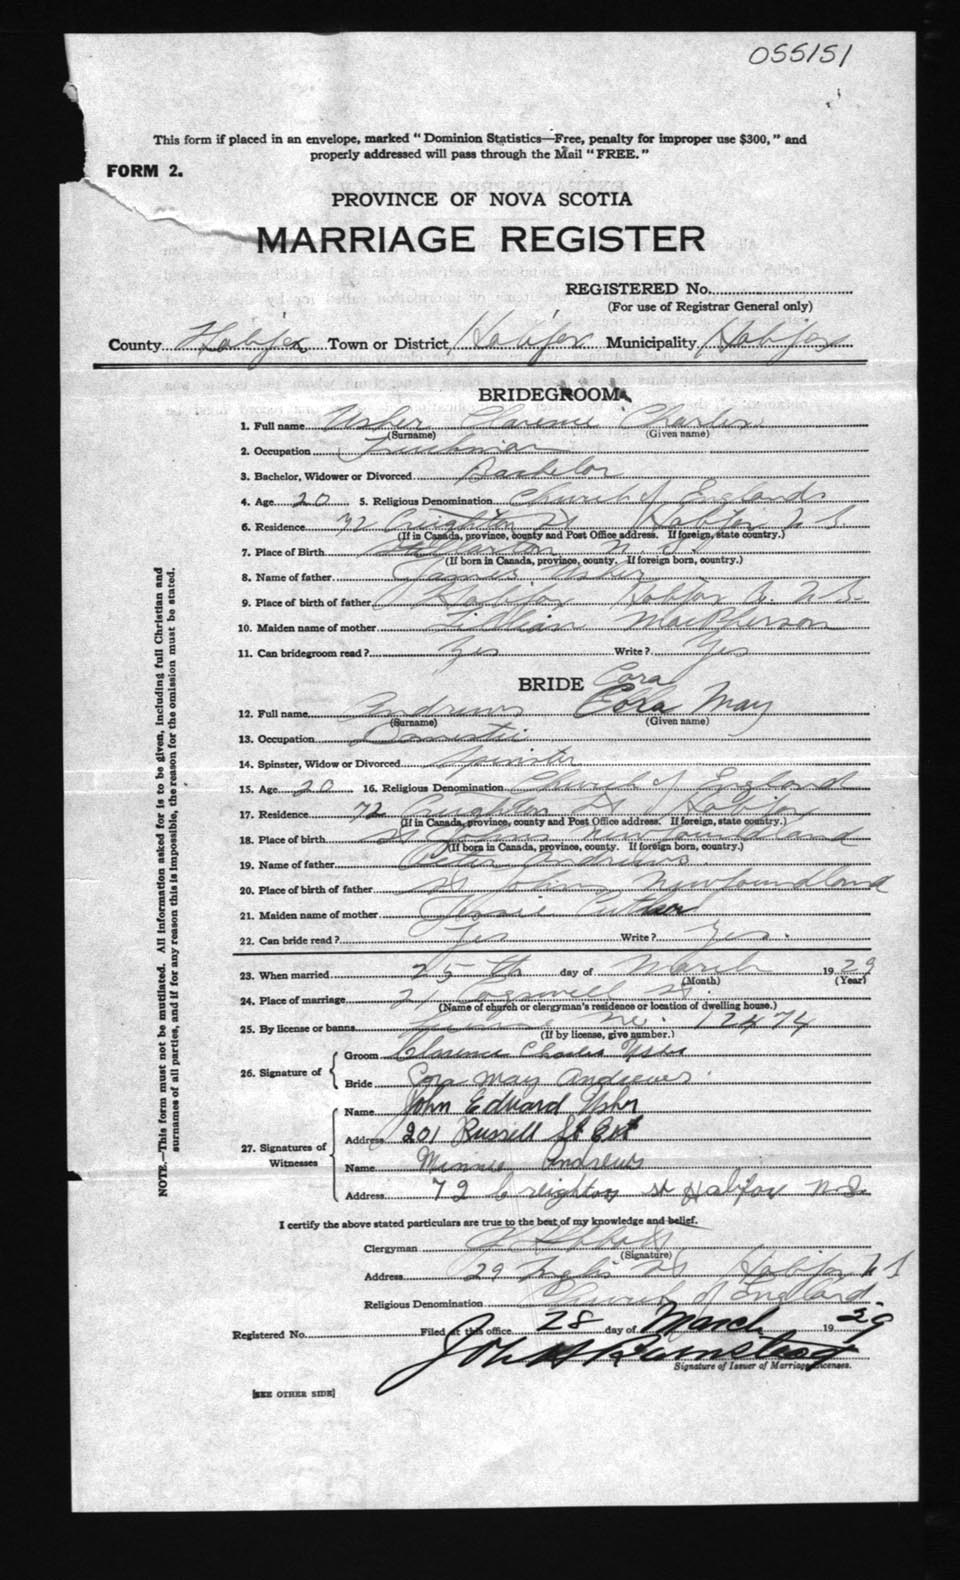 055151
This form if placed in an envelope, marked "Dominion Statistics—Free, penalty for improper use $300," and
properly addressed will pass through the Mail "FREE."
FORM 2.
PROVINCE OF NOVA SCOTIA
MARRIAGE REGISTER
REGISTERED No.
(For use of Registrar General only)
County Halifax Town or District Halifax Municipality Halifax
BRIDEGROOM
1. Full name Usher Clarence Charles
(Surname) (Given name)
2. Occupation
3. Bachelor, Widower or Divorced Bachelor
4. Age 20 5. Religious Denomination Church of England
6. Residence 72 Creighton St Halifax N.S.
(If in Canada, province, county and Post Office address. If foreign, state country.)
7. Place of Birth Stellarton N.S.
(If born in Canada, province, county. If foreign born, country.)
8. Name of father James Usher
9. Place of birth of father Halifax Halifax Co. N.S.
10. Maiden name of mother Lillian MacPherson
11. Can bridegroom read? Yes Write? Yes
BRIDE Cora
12. Full name Andrews Cora May
(Surname) (Given name)
13. Occupation Domestic
14. Spinster, Widow or Divorced Spinster
15. Age 20 16. Religious Denomination Church of England
17. Residence 72 Creighton St Halifax
(If in Canada, province, county and Post Office address. If foreign, state country.)
18. Place of birth St Johns Newfoundland
(If born in Canada, province, county. If foreign born, country.)
19. Name of father Peter Andrews
20. Place of birth of father St Johns Newfoundland
21. Maiden name of mother Jessie
22. Can bride read? Yes Write? Yes.
23. When married 25th day of March 1929
(Month) (Year)
24. Place of marriage 21 Cogswell St.
(Name of church or clergyman's residence or location of dwelling house.)
25. By license or banns No. 12474
(If by license, give number.)
26. Signature of
Groom Clarence Charles Usher
Bride Cora May Andrews.
27. Signatures of Witnesses
Name John Edward Usher
Address 201 Russell St Ext
Name Minnie Andrews
Address 72 Creighton St Halifax N.S.
I certify the above stated particulars are true to the best of my knowledge and belief.
Clergyman
(Signature)
Address 29 Inglis St Halifax N S
Religious Denomination Church of England
Registered No. Filed at this office 28 day of March 1929
Signature of Issuer of Marriage Licenses.
[SEE OTHER SIDE]
NOTE.—This form must not be mutilated. All information asked for is to be given, including full Christian and
surnames of all parties, and if for any reason this is impossible, the reason for the omission must be stated.